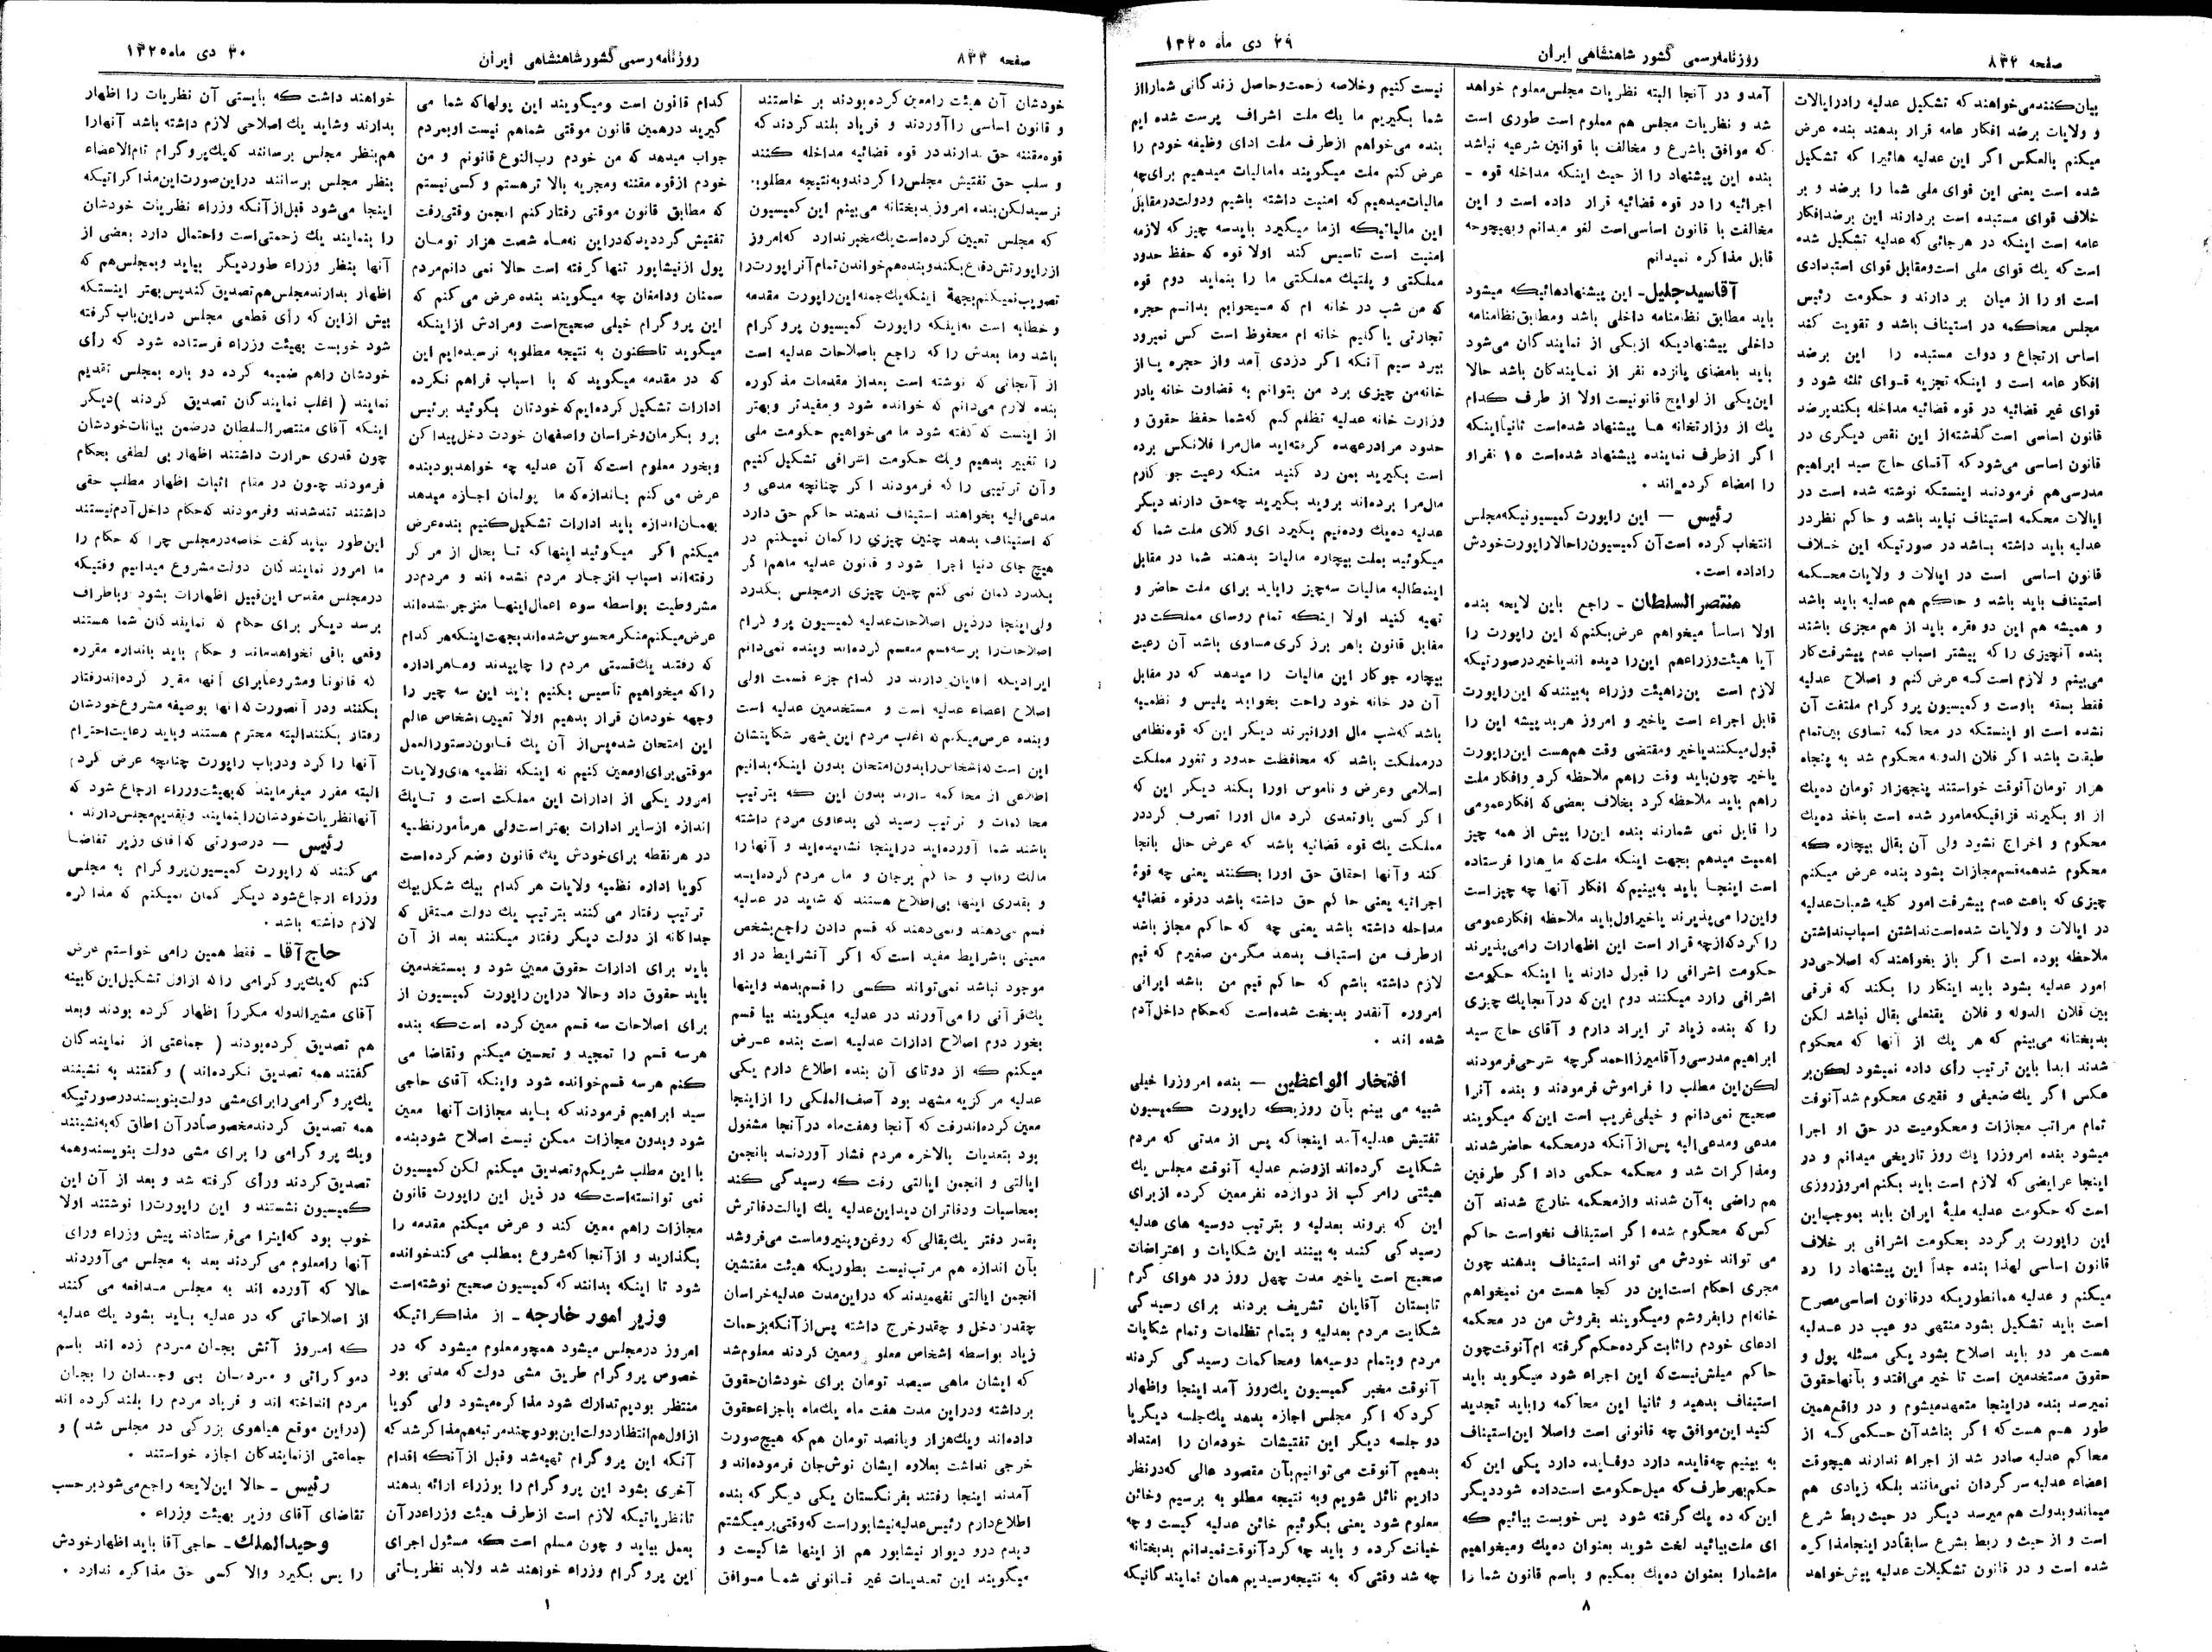 صفحه ۸۳۲
روزنامه رسمی کشور شاهنشاهی ایران
۲۹ دی ماه ۱۳۲۵
بیان‌کنند می‌خواهند که تشکیل عدلیه را در ایالات
و ولایات برضد افکار عامه قرار بدهند بنده عرض
میکنم بالعکس اگر این عدلیه هائیرا که تشکیل
شده است یعنی این قوای ملی شما را برضد و بر
خلاف قوای مستبده است بردارند این برضدافکار
عامه است اینکه در هر جائی که عدلیه تشکیل شده
است که یک قوای ملی است و مقابل قوای استبدادی
است او را از میان بر دارند و حکومت رئیس
مجلس محاکمه در استیناف باشد و تقویت کند
اساس ارتجاع و دولت مستبده را این برضد
افکار عامه است و اینکه تجزیه قوای ثلثه شود و
قوای غیر قضائیه در قوه قضائیه مداخله بکند برضد
قانون اساسی است گذشته از این نقص دیگری در
قانون اساسی می‌شود که آقای حاج سید ابراهیم
مدرسی هم فرمودند اینستکه نوشته شده است در
ایالات محکمه استیناف نباید باشد و حاکم نظر در
عدلیه باید داشته باشد در صورتیکه این خلاف
قانون اساسی است در ایالات و ولایات محکمه
استیناف باید باشد و حاکم هم عدلیه باید باشد
و همیشه هم این دو فقره باید از هم مجزی باشند
بنده آنچیزی را که بیشتر اسباب عدم پیشرفت کار
می‌بینم و لازم است که عرض کنم و اصلاح عدلیه
فقط بسته باوست و کمیسیون پروگرام ملتفت آن
نشده است او اینستکه در محاکمه تساوی بین تمام
طبقات باشد اگر فلان الدوله محکوم شد به پنجاه
هزار تومان آنوقت خواستند پنجهزار تومان ده‌یک
از او بگیرند قزاقیکه مامور شده است باخذ ده‌یک
محکوم و اخراج نشود ولی آن بقال بیچاره که
محکوم شد همه قسم مجازات بشود بنده عرض میکنم
چیزی که باعث عدم پیشرفت امور کلیه شعبات عدلیه
در ایالات و ولایات شده است نداشتن اسباب نداشتن
ملاحظه بوده است اگر باز بخواهند که اصلاحی در
امور عدلیه بشود باید اینکار را بکند که فرقی
بین فلان الدوله و فلان یقنعلی بقال نباشد لکن
بدبختانه می‌بینم که هر یک از آنها که محکوم
شدند ابدا باین ترتیب رأی داده نمیشود لکن بر
عکس اگر یک ضعیفی و فقیری محکوم شد آنوقت
تمام مراتب مجازات و محکومیت در حق او اجرا
میشود بنده امروز را یک روز تاریخی میدانم و در
اینجا عرایضی که لازم است باید بکنم امروز روزی
است که حکومت عدلیه ملیهٔ ایران باید بموجب این
این راپورت بر گردد بحکومت اشرافی بر خلاف
قانون اساسی لهذا بنده جداً این پیشنهاد را رد
میکنم و عدلیه همانطوریکه در قانون اساسی مصرح
است باید تشکیل بشود منتهی دو عیب در عدلیه
هست هر دو باید اصلاح بشود یکی مسئله پول و
حقوق مستخدمین است تا خیر می‌افتد و بآنها حقوق
نمیرسد بنده در اینجا متعهد میشوم و در واقع همین
طور هم هست که اگر بناشد آن حکمی که از
محاکم عدلیه صادر شد از اجراء ندارند هیچوقت
اعضاء عدلیه سر گردان نمی‌مانند بلکه زیادی هم
میماند و بدولت هم میرسد دیگر در حیث ربط شرع
است و از حیث و ربط بشرع سابقاً در اینجا مذاکره
شده است و در قانون تشکیلات عدلیه پیش خواهد
آمد و در آنجا البته نظریات مجلس معلوم خواهد
شد و نظریات مجلس هم معلوم است طوری است
که موافق باشرع و مخالف با قوانین شرعیه نباشد
بنده این پیشنهاد را از حیث اینکه مداخله قوه ـ
اجرائیه را در قوه قضائیه قرار داده است و این
مخالفت با قانون اساسی است لغو میدانم و بهیچوجه
قابل مذاکره نمیدانم
آقاسید جلیل ـ این پیشنهادهائیکه میشود
باید مطابق نظامنامه داخلی باشد و مطابق نظامنامه
داخلی پیشنهادیکه از یکی از نمایندگان می‌شود
باید بامضای پانزده نفر از نمایندگان باشد حالا
این یکی از لوایح قانونیست اولا از طرف کدام
یک از وزارتخانه ها پیشنهاد شده است ثانیاً اینکه
اگر از طرف نماینده پیشنهاد شده است ۱۵ نفر او
را امضاء کرده‌اند .
رئیس — این راپورت کمیسیونیکه مجلس
انتخاب کرده است آن کمیسیون را حالا راپورت خودش
را داده است.
منتصرالسلطان ـ راجع باین لایحه بنده
اولا اساساً میخواهم عرض بکنم که این راپورت را
آیا هیئت وزراء هم این را دیده اند یا خیر در صورتیکه
لازم است این را هیئت وزراء به‌بینند که این راپورت
قابل اجراء است یاخیر و امروز هر بد پیشه این را
قبول میکنند یاخیر و مقتضی وقت هم هست این راپورت
یا خیر چون باید وقت راهم ملاحظه کرد و افکار ملت
راهم باید ملاحظه کرد بخلاف بعضی که افکار عمومی
را قابل نمی شمارند بنده این را بیش از همه چیز
اهمیت میدهم بجهت اینکه ملت که ما ها را فرستاده
است اینجا باید به‌بینیم که افکار آنها چه چیز است
و این را می‌پذیرند یا خیر اول باید ملاحظه افکار عمومی
را کرد که از چه قرار است این اظهارات را می‌پذیرند
حکومت اشرافی را قبول دارند یا اینکه حکومت
اشرافی را رد میکنند دوم این که در آنجا یک چیزی
را که بنده زیاد تر ایراد دارم و آقای حاج سید
ابراهیم مدرسی و آقا میرزا احمد گرچه شرحی فرمودند
لکن این مطلب را فراموش فرمودند و بنده آنرا
صحیح نمی‌دانم و خیلی غریب است این که میگویند
مدعی و مدعی الیه پس از آنکه در محکمه حاضر شدند
و مذاکرات شد و محکمه حکمی داد اگر طرفین
هم راضی به آن شدند و از محکمه خارج شدند آن
کس که محکوم شده اگر استیناف نخواست حاکم
می تواند خودش می تواند استیناف بدهند چون
مجری احکام است این در کجا هست من نمیخواهم
خانه‌ام را بفروشم و میگویند بفروش من در محکمه
ادعای خودم را ثابت کرده حکم گرفته ام آنوقت چون
حاکم میلش نیست که این اجراء شود میگوید باید
استیناف بدهید و ثانیا این محاکمه را باید تجدید
کنید این موافق چه قانونی است و اصلا این استیناف
به بینیم چه فایده دارد دو فایده دارد یکی این که
حکم بهر طرف که میل حکومت است داده شود دیگر
این که ده یک گرفته شود پس خوبست بیائیم که
ای ملت بیائید لخت شوید بعنوان ده‌یک و میخواهیم
ما شما را بعنوان ده‌یک بمکیم و باسم قانون شما را
نیست کنیم و خلاصه زحمت و حاصل زندگانی شما را از
شما بگیریم ما یک ملت اشراف پرست شده ایم
بنده می‌خواهم از طرف ملت ادای وظیفه خودم را
عرض کنم ملت میگویند ما مالیات میدهیم برای چه
مالیات میدهیم که امنیت داشته باشیم و دولت در مقابل
این مالیاتیکه از ما میگیرد باید سه چیز که لازمه
امنیت است تاسیس کند اولا قوه که حفظ حدود
مملکتی و پلتیک مملکتی ما را بنماید دوم قوه
که من شب در خانه ام که میخوابم بدانم حجره
تجارتی یا گنیم خانه ام محفوظ است کس نمیرود
ببرد سیم آنکه اگر دزدی آمد و از حجره یا از
خانه من چیزی برد من بتوانم به قضاوت خانه یا در
وزارت خانه عدلیه تظلم کنم که شما حفظ حقوق و
حدود مرا در عهده گرفته‌اید مال مرا فلانکس برده
است بگیرید بمن رد کنید منکه رعیت جو کارم
مال مرا برده‌اند بروید بگیرید چه حق دارند دیگر
عدلیه ده‌یک و ده‌نیم بگیرد ای وکلای ملت شما که
میگوئید بملت بیچاره مالیات بدهند شما در مقابل
اینمطالبه مالیات سه چیز را باید برای ملت حاضر و
تهیه کنید اولا اینکه تمام روسای مملکت در
مقابل قانون باهر برزگری مساوی باشد آن رعیت
بیچاره جو کار این مالیات را میدهد که در مقابل
آن در خانه خود راحت بخوابد پلیس و نظمیه
باشد که شب مال او را نبرند دیگر این که قوه نظامی
در مملکت باشد که محافظت حدود و ثغور مملکت
اسلامی و عرض و ناموس او را بکند دیگر این که
اگر کسی باو تعدی کرد مال او را تصرف کرد در
مملکت یک قوه قضائیه باشد که عرض حال بانجا
کند و آنها احقاق حق او را بکنند یعنی چه قوهٔ
اجرائیه یعنی حاکم حق داشته باشد در قوه قضائیه
مداخله داشته باشد یعنی چه که حاکم مجاز باشد
از طرف من استیناف بدهد مگر من صغیرم که قیم
لازم داشته باشم که حاکم قیم من باشد ایرانی
امروزه آنقدر بدبخت شده است که حکام داخل آدم
شده اند .
افتخار الواعظین — بنده امروز را خیلی
شبیه می بینم بآن روزیکه راپورت کمیسیون
تفتیش عدلیه آمد اینجا که پس از مدتی که مردم
شکایت کرده‌اند از وضع عدلیه آنوقت مجلس یک
هیئتی را مرکب از دوازده نفر معین کرده از برای
این که بروند بعدلیه و بترتیب دوسیه های عدلیه
رسیدگی کنند به بینند این شکایات و اعتراضات
صحیح است یاخیر مدت چهل روز در هوای گرم
تابستان آقایان تشریف بردند برای رسیدگی
شکایت مردم بعدلیه و بتمام تظلمات و تمام شکایات
مردم و بتمام دوسیه‌ها و محاکمات رسیدگی کردند
آنوقت مخبر کمیسیون یک روز آمد اینجا و اظهار
کرد که اگر مجلس اجازه بدهد یک جلسه دیگر یا
دو جلسه دیگر این تفتیشات خودمان را امتداد
بدهیم آنوقت می‌توانیم بآن مقصود عالی که در نظر
داریم نائل شویم و به نتیجه مطلو به برسیم و خائن
معلوم شود یعنی بگوئیم خائن عدلیه کیست و چه
خیانت کرده و باید چه کرد آنوقت نمیدانم بدبختانه
چه شد وقتی که به نتیجه رسیدیم همان نمایندگانیکه
۸
صفحه ۸۳۳
روزنامه رسمی کشور شاهنشاهی ایران
۳۰ دی ماه ۱۳۲۵
خودشان آن هیئت را معین کرده بودند بر خاستند
و قانون اساسی را آوردند و فریاد بلند کردند که
قوه مقننه حق ندارند در قوه قضائیه مداخله کنند
و سلب حق تفتیش مجلس را کردند و به نتیجه مطلوبه
نرسید لکن بنده امروز بدبختانه می‌بینم این کمیسیون
که مجلس تعیین کرده است یک مخبر ندارد که امروز
از راپورتش دفاع بکند و بنده هم خواندن تمام آن راپورت را
تصویب نمیکنم بجهة اینکه یک جمله این راپورت مقدمه
و خطابه است نه اینکه راپورت کمیسیون پروگرام
باشد و ما بعدش را که راجع باصلاحات عدلیه است
از آنجائی که نوشته است بعد از مقدمات مذکوره
بنده لازم می‌دانم که خوانده شود و مفیدتر و بهتر
از اینست که گفته شود ما می‌خواهیم حکومت ملی
را تغییر بدهیم و یک حکومت اشرافی تشکیل کنیم
و آن ترتیبی را که فرمودند اگر چنانچه مدعی و
مدعی الیه بخواهند استیناف ندهند حاکم حق دارد
که استیناف بدهد چنین چیزی را گمان نمیکنم در
هیچ جای دنیا اجرا شود و قانون عدلیه ماهم اگر
بگذرد گمان نمی کنم چنین چیزی از مجلس بگذرد
ولی اینجا در ذیل اصلاحات عدلیه کمیسیون پروگرام
اصلاحات را بر سه قسم منقسم کرده‌اند و بنده نمی‌دانم
ایرادیکه آقایان دارند در کدام جزء قسمت اولی
اصلاح اعضاء عدلیه است و مستخدمین عدلیه است
و بنده عرض میکنم که اغلب مردم این شهر شکایتشان
این است که اشخاص را بدون امتحان بدون اینکه بدانیم
اطلاعی از محاکمه دارند بدون این که بترتیب
محاکمات و ترتیب رسیدگی بدعاوی مردم داشته
باشند شما آورده‌اید در اینجا نشانیده‌اید و آنها را
مالک رقاب و حاکم بر جان و مال مردم کرده‌اید
و بقدری اینها بی اطلاع هستند که شاید در عدلیه
قسم می‌دهند و نمی‌دهند که قسم دادن راجع بشخص
معینی با شرایط مفید است که اگر آنشرایط در او
موجود نباشد نمی‌تواند کسی را قسم بدهد و اینها
یک قرآنی را می‌آورند در عدلیه میگویند بیا قسم
بخور دوم اصلاح ادارات عدلیه است بنده عرض
میکنم که از دوتای آن بنده اطلاع دارم یکی
عدلیه مرکزیه مشهد بود آصف‌الملکی را از اینجا
معین کرده‌اند رفت که آنجا و هفت ماه در آنجا مشغول
بود بتعدیات بالاخره مردم فشار آوردند بانجمن
ایالتی و انجمن ایالتی رفت که رسیدگی کند
بمحاسبات و دفاتر ان دید این عدلیه یک ایالت دفاترش
بقدر دفتر یک بقالی که روغن و پنیر و ماست می‌فروشد
بآن اندازه هم مرتب نیست بطوریکه هیئت مفتشین
انجمن ایالتی نفهمیدند که در این مدت عدلیه خراسان
چقدر دخل و چقدر خرج داشته پس از آنکه بزحمات
زیاد بواسطه اشخاص معلو و معین کردند معلوم شد
که ایشان ماهی سیصد تومان برای خودشان حقوق
برداشته و در این مدت هفت ماه یک ماه باجزاء حقوق
داده‌اند و یک هزار و پانصد تومان هم که هیچ صورت
خرجی نداشت بعلاوه ایشان نوش جان فرموده‌اند و
آمدند اینجا رفتند بفرنگستان یکی دیگر که بنده
اطلاع دارم رئیس عدلیه نیشابور است که وقتی بر میگشتم
دیدم در و دیوار نیشابور هم از اینها شاکیست و
میگویند این تعدیات غیر قانونی شما موافق
کدام قانون است و میگویند این پولها که شما می
گیرید در همین قانون موقتی شما هم نیست او بمردم
جواب میدهد که من خودم رب النوع قانونم و من
خودم از قوه مقننه و مجریه بالا تر هستم و کسی نیستم
که مطابق قانون موقتی رفتار کنم انجمن وقتی رفت
تفتیش گردید که در این نه ماه شصت هزار تومان
پول از نیشاپور تنها گرفته است حالا نمی دانم مردم
سمنان و دامغان چه میگویند بنده عرض می کنم که
این پروگرام خیلی صحیح است و مرادش از اینکه
میگوید تاکنون به نتیجه مطلوبه نرسیده‌ایم این
که در مقدمه میگوید که با اسباب فراهم نکرده
ادارات تشکیل کرده‌ایم که خودتان بگوئید برئیس
برو بکرمان و خراسان و اصفهان خودت دخل پیدا کن
و بخور معلوم است که آن عدلیه چه خواهد بود بنده
عرض می کنم باندازه که ما پولمان اجازه میدهد
بهمان اندازه باید ادارات تشکیل کنیم بنده عرض
میکنم اگر میگوئید اینها که تا بحال از مرکز
رفته‌اند اسباب انزجار مردم نشده اند و مردم در
مشروطیت بواسطه سوء اعمال اینها منزجر نشده‌اند
عرض میکنم منکر محسوس شده‌اند بجهت اینکه هر کدام
که رفتند یک قسمتی مردم را چاپیدند و ما هر اداره
را که میخواهیم تأسیس بکنیم باید این سه چیز را
وجهه خودمان قرار بدهیم اولا تعیین اشخاص عالم
این امتحان شده پس از آن یک قانون دستورالعمل
موقتی برای او معین کنیم نه اینکه نظمیه های ولایات
امروز یکی از ادارات این مملکت است و تا یک
اندازه از سایر ادارات بهتر است ولی هر مأمور نظمیه
در هر نقطه برای خودش یک قانون وضع کرده است
گویا اداره نظمیه ولایات هر کدام بیک شکل بیک
ترتیب رفتار می کنند بترتیب یک دولت مستقل که
جداگانه از دولت دیگر رفتار میکنند بعد از آن
باید برای ادارات حقوق معین شود و بمستخدمین
باید حقوق داد و حالا در این راپورت کمیسیون از
برای اصلاحات سه قسم معین کرده است که بنده
هر سه قسم را تمجید و تحسین میکنم و تقاضا می
کنم هر سه قسم خوانده شود و اینکه آقای حاجی
سید ابراهیم فرمودند که باید مجازات آنها معین
شود و بدون مجازات ممکن نیست اصلاح شود بنده
با این مطلب شریکم و تصدیق میکنم لکن کمیسیون
نمی توانسته است که در ذیل این راپورت قانون
مجازات راهم معین کند و عرض میکنم مقدمه را
بگذارید و از آنجا که شروع بمطلب می کند خوانده
شود تا اینکه بدانند که کمیسیون صحیح نوشته است
وزیر امور خارجه ـ از مذاکراتیکه
امروز در مجلس میشود همچو معلوم میشود که در
خصوص پروگرام طریق مشی دولت که مدتی بود
منتظر بودیم تدارک شود مذاکره میشود ولی گویا
از اول هم انتظار دولت این بود و چند مرتبه هم مذاکر شد که
آنکه این پروگرام تهیه شد و قبل از آنکه اقدام
آخری بشود این پروگرام را بوزراء ارائه بدهند
تا نظریاتیکه لازم است از طرف هیئت وزراء در آن
بعمل بیاید و چون مسلم است که مسئول اجرای
این پروگرام وزراء خواهند شد و لابد نظریاتی
خواهند داشت که بایستی آن نظریات را اظهار
بدارند و شاید یک اصلاحی لازم داشته باشد آنها را
هم بنظر مجلس برسانند که یک پروگرام تام‌الاعضاء
بنظر مجلس برسانند در این صورت این مذاکراتیکه
اینجا می‌شود قبل از آنکه وزراء نظریات خودشان
را بنمایند یک زحمتی است و احتمال دارد بعضی از
آنها بنظر وزراء طور دیگر بیاید و بمجلس هم که
اظهار بدارند مجلس هم تصدیق کند پس بهتر اینستکه
پیش از این که رأی قطعی مجلس در این باب گرفته
شود خوبست بهیئت وزراء فرستاده شود که رأی
خودشان راهم ضمیمه کرده دو باره بمجلس تقدیم
نمایند ( اغلب نمایندگان تصدیق کردند ) دیگر
اینکه آقای منتصرالسلطان در ضمن بیانات خودشان
چون قدری حرارت داشتند اظهار بی لطفی بحکام
فرمودند چون در مقام اثبات اظهار مطلب حقی
داشتند تند شدند و فرمودند که حکام داخل آدم نیستند
این طور نباید گفت خاصه در مجلس چرا که حکام را
ما امروز نمایندگان دولت مشروع میدانیم وقتیکه
در مجلس مقدس این قبیل اظهارات بشود و باطراف
برسد دیگر برای حکام که نمایندگان شما هستند
وقعی باقی نخواهد ماند و حکام باید باندازه مقرره
که قانونا و مشروعا برای آنها مقرر کرده‌اند رفتار
بکنند و در آنصورت که آنها بوصیفه مشروع خودشان
رفتار بکنند البته محترم هستند و باید رعایت احترام
آنها را کرد و در باب راپورت چنانچه عرض کردم
البته مقرر میفرمایند که بهیئت وزراء ارجاع شود که
آنها نظریات خودشان را بنمایند و تقدیم مجلس دارند .
رئیس — در صورتی که آقای وزیر تقاضا
می کنند که راپورت کمیسیون پروگرام به مجلس
وزراء ارجاع شود دیگر گمان نمیکنم که مذاکره
لازم داشته باشد .
حاج آقا ـ فقط همین را می خواستم عرض
کنم که یک پروگرامی را که از اول تشکیل این کابینه
آقای مشیرالدوله مکرراً اظهار کرده بودند و بعد
هم تصدیق کرده بودند ( جماعتی از نمایندگان
گفتند همه تصدیق نکرده‌اند ) و گفتند به نشینند
یک پروگرامی را برای مشی دولت بنویسند در صورتیکه
همه تصدیق کردند مخصوصاً در آن اطاق که به نشینند
و یک پروگرامی را برای مشی دولت بنویسند و همه
تصدیق کردند و رأی گرفته شد و بعد از آن این
کمیسیون نشستند و این راپورت را نوشتند اولا
خوب بود که اینرا می‌فرستادند پیش وزراء و رای
آنها را معلوم می کردند بعد به مجلس می‌آوردند
حالا که آورده اند به مجلس مدافعه می کنند
از اصلاحاتی که در عدلیه باید بشود یک عدلیه
که امروز آتش بجان مردم زده اند باسم
دموکراتی و مردمان بی وجدان را بجان
مردم انداخته اند و فریاد مردم را بلند کرده اند
(در این موقع هیاهوی بزرگی در مجلس شد ) و
جماعتی از نمایندگان اجازه خواستند .
رئیس ـ حالا این لایحه راجع می‌شود بر حسب
تقاضای آقای وزیر بهیئت وزراء .
وحیدالملک ـ حاجی آقا باید اظهار خودش
را پس بگیرد والا کسی حق مذاکره ندارد .
۱